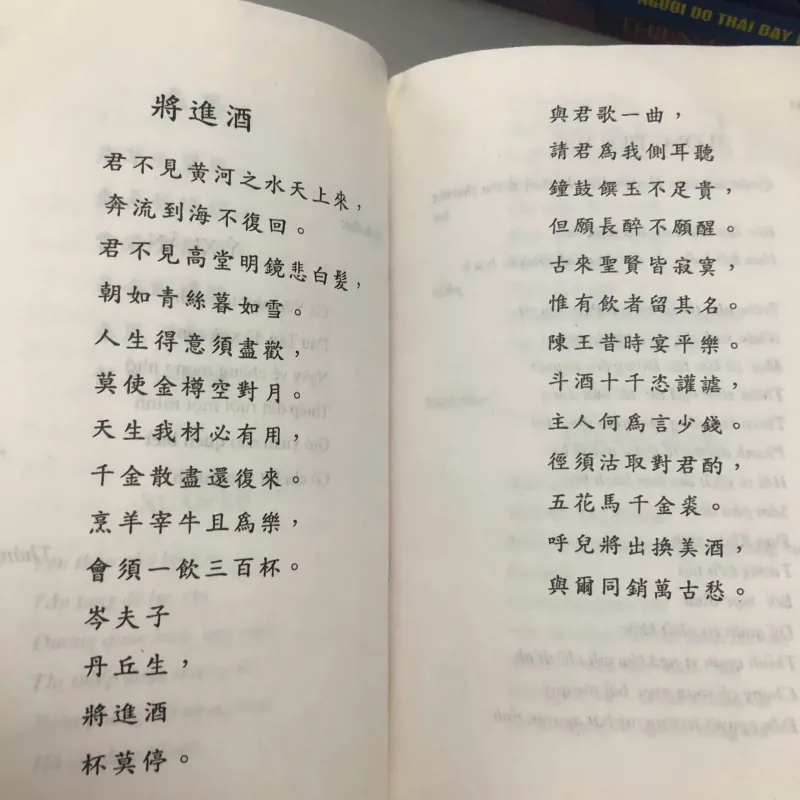 NGƯỜI DO THÁI DẠY
將進酒
君不見黃河之水天上來，
奔流到海不復回。
君不見高堂明鏡悲白髮，
朝如青絲暮如雪。
人生得意須盡歡，
莫使金樽空對月。
天生我材必有用，
千金散盡還復來。
烹羊宰牛且爲樂，
會須一飲三百杯。
岑夫子
丹丘生，
將進酒
杯莫停。
與君歌一曲，
請君爲我側耳聽
鐘鼓饌玉不足貴，
但願長醉不願醒。
古來聖賢皆寂寞，
惟有飲者留其名。
陳王昔時宴平樂。
斗酒十千恣讙謔，
主人何爲言少錢。
徑須沽取對君酌，
五花馬千金裘。
呼兒將出換美酒，
與爾同銷萬古愁。